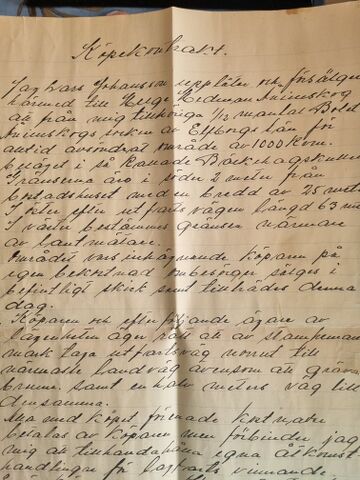 Köpekontrakt.
Jag Lars Johansson upplåter och försäljer
härmed till Helge Hedman Ånimskog
ett från mig tillhöriga 1/2 mantal Böle
Ånimskogs socken av Elfsborgs län för
alltid avsöndrat område av 1000 kvm.
beläget i så kallade Backehagskullen
Gränserna äro i söder 2 meter från
bostadshuset med en bredd av 25 meter
I öster efter utfartsvägen längd 63 m
I väster bestämmes gränsen närmare
av lantmätare.
Området vars inhägnande köparen på
egen bekostnad ombesörger säljes i
befintligt skick samt tillträdes denna
dag.
Köparen och efter följande ägare av
lägenheten äger rätt att av stamhemmanets
mark taga utfartsväg norrut till
närmaste landväg ävensom att gräva
brunn. samt en halv meters väg till
densamma.
Alla med köpet förenade kostnader
betalas av köparen men förbinder jag
mig att tillhandahålla egna åtkomst
handlingar för lagfarts vinnande.